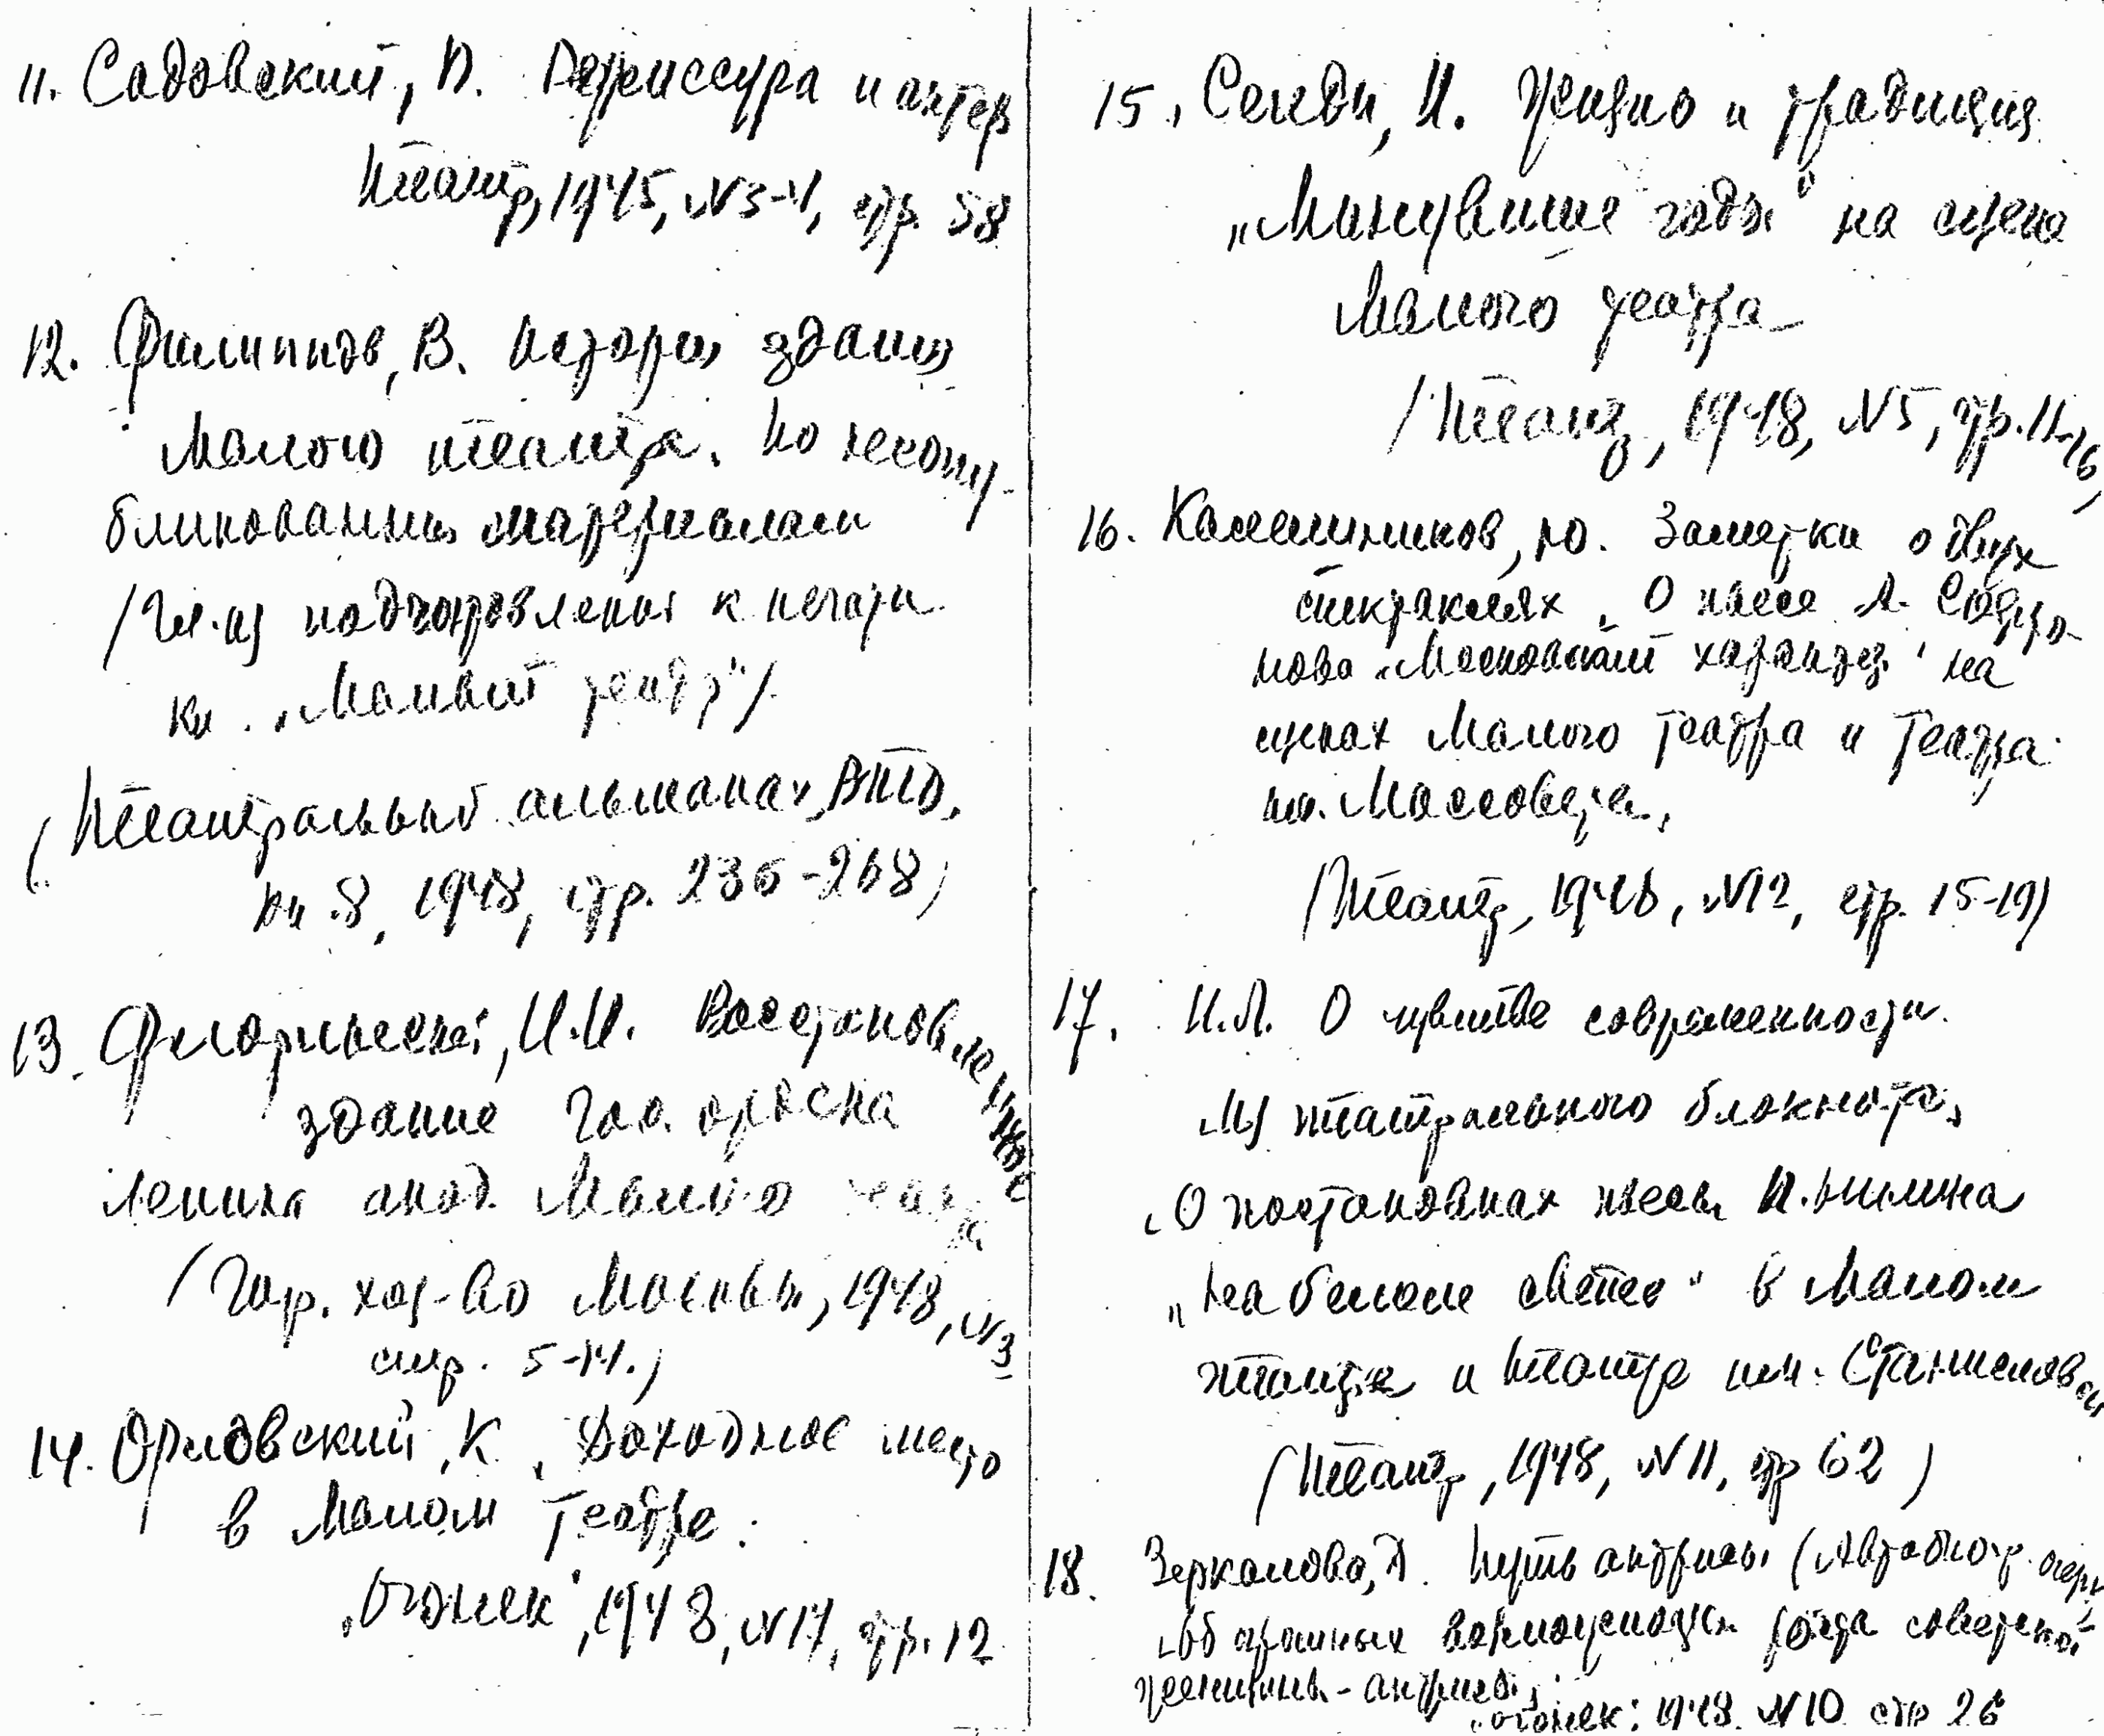 11. Садовский, П. Режиссура и актер
Театр, 1945, №3-4, стр. 58
12. Филиппов, В. История здания
Малого театра. По неопу-
бликованным материалам
/Гл. из подготовленной к печати
кн. „Малый театр"/.
(Театральный альманах, ВТО,
кн. 8, 1948, стр. 236-268)
13. И.И. Восстановленное
здание Гос. ордена
Ленина акад. Малого театра
/Гор. хоз-во Москвы, 1948, №3
стр. 5-14.)
14. Орловский, К. Доходное место
в Малом театре.
„Огонек", 1948, №17, стр. 12
15. И. Жизнь и традиция
„Минувшие годы" на сцене
Малого театра
/Театр, 1948, №5, стр. 11-16,
16. Калашников, Ю. Заметки о двух
спектаклях. О пьесе А. Софро-
нова „Московский характер" на
сценах Малого театра и Театра
им. Моссовета.
/Театр, 1948, №12, стр. 15-19)
17. И.Л. О чувстве современности
Из театрального блокнота.
О постановках пьесы П. Нилина
„На белом свете" в Малом
театре и Театре им. Станиславск
(Театр, 1948, №11, стр 62)
18. Зеркалова, Д. Путь актрисы (Автобиогр. очерк
Об огромных возможностях роста советской
женщины-актрисы.
„Огонек: 1948. №10 стр 26